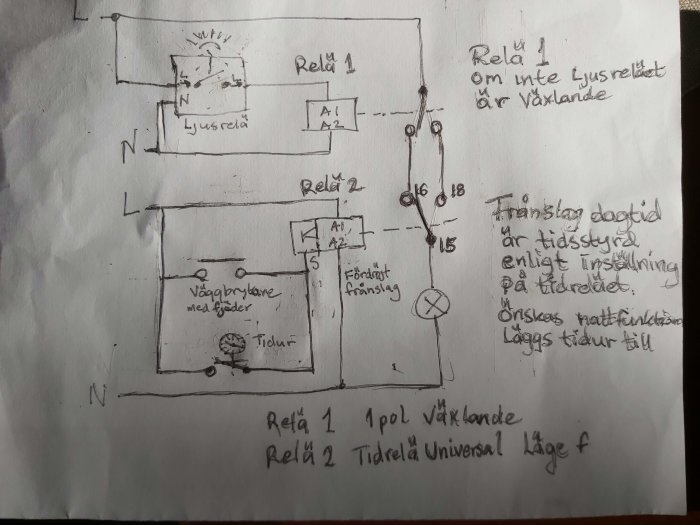 L
Relä 1
L
L
N
Ljusrelä
A1
A2
N
Relä 1
om inte Ljusreläet
är Växlande
Relä 2
L
A1
A2
S
16
18
15
Fördröjt
frånslag
Väggbrytare
med fjäder
Tidur
Frånslag dagtid
är tidsstyrd
enligt inställning
på tidreläet.
Önskas nattfunktion
Läggs tidur till
N
Relä 1 1 pol Växlande
Relä 2 Tidrelä Universal Läge f